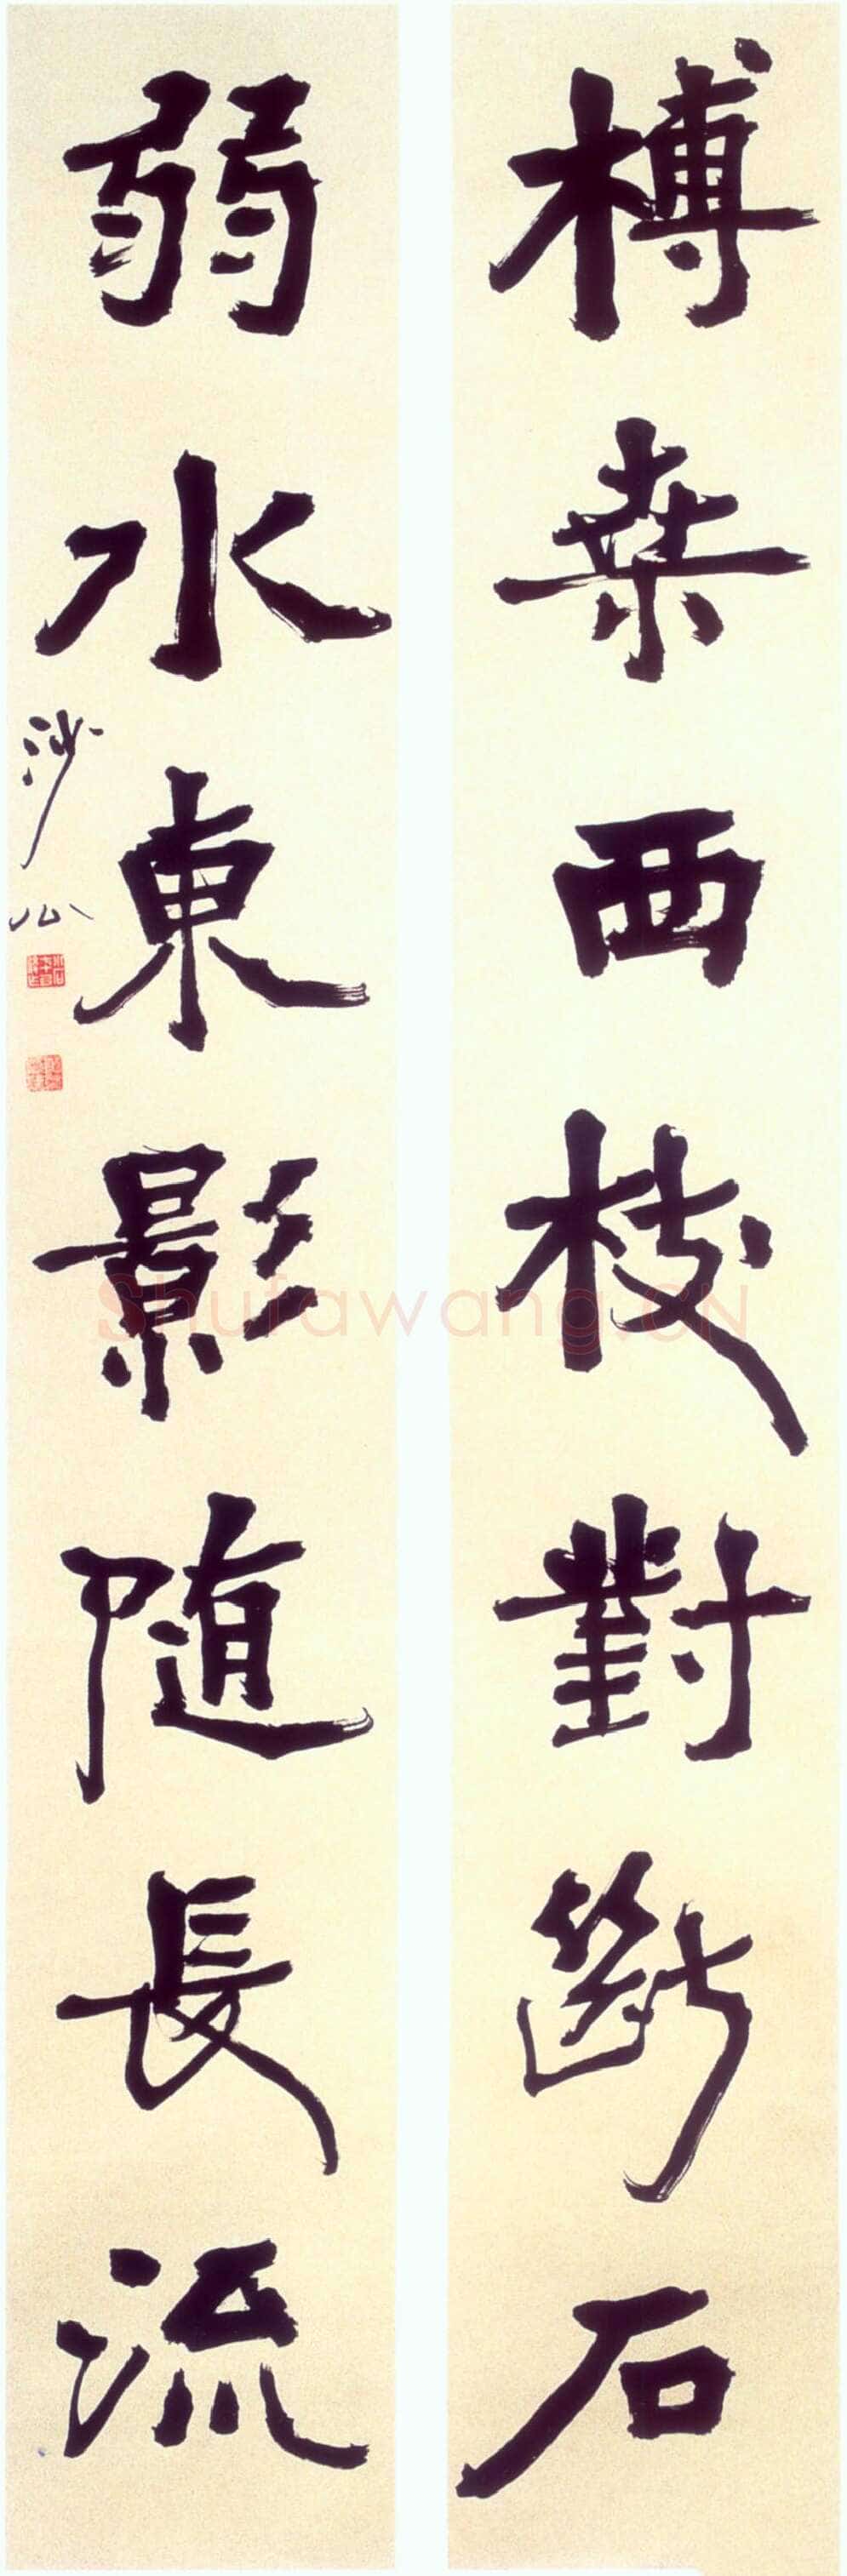 榑桒西枝對斷石
弱水東影随長流
沙公
Shufawang.CN